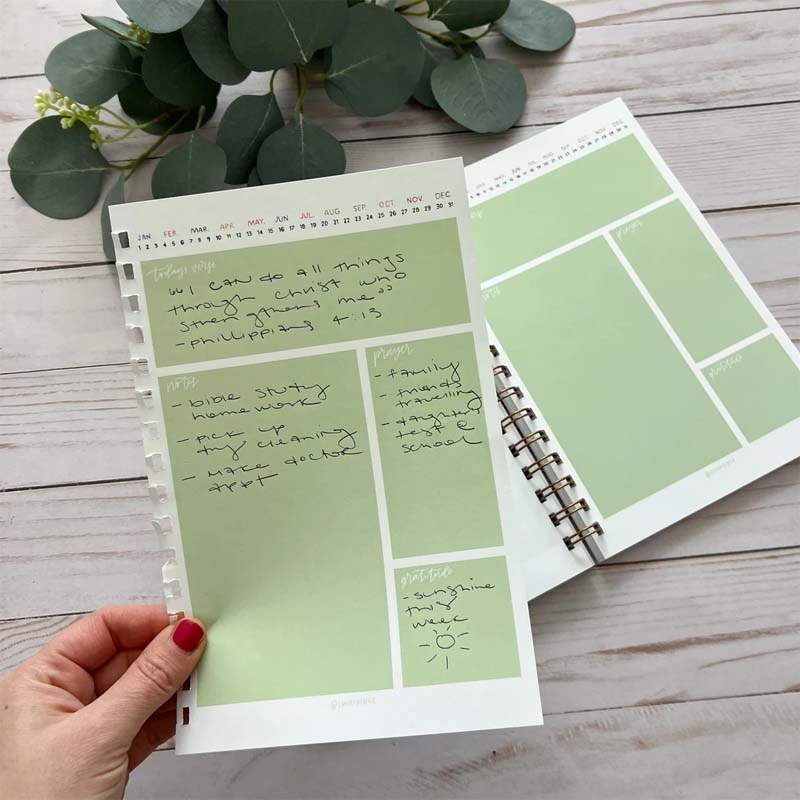 JAN FEB MAR APR. MAY. JUN JUL AUG SEP OCT. NOV. DEC
1 2 3 4 5 6 7 8 9 10 11 12 13 14 15 16 17 18 19 20 21 22 23 24 25 26 27 28 29 30 31
today's verse
"I can do all things
through Christ who
strengthens me"
- Phillippians 4:13
notes
- bible study
homework
- pick up
dry cleaning
- make doctor
appt
prayer
- family
- friends
travelling
- daughter's
test @
school
gratitude
- sunshine
this
week
MAR. JUN JUL. AUG SEP OCT. NOV. DEC
prayer
gratitude